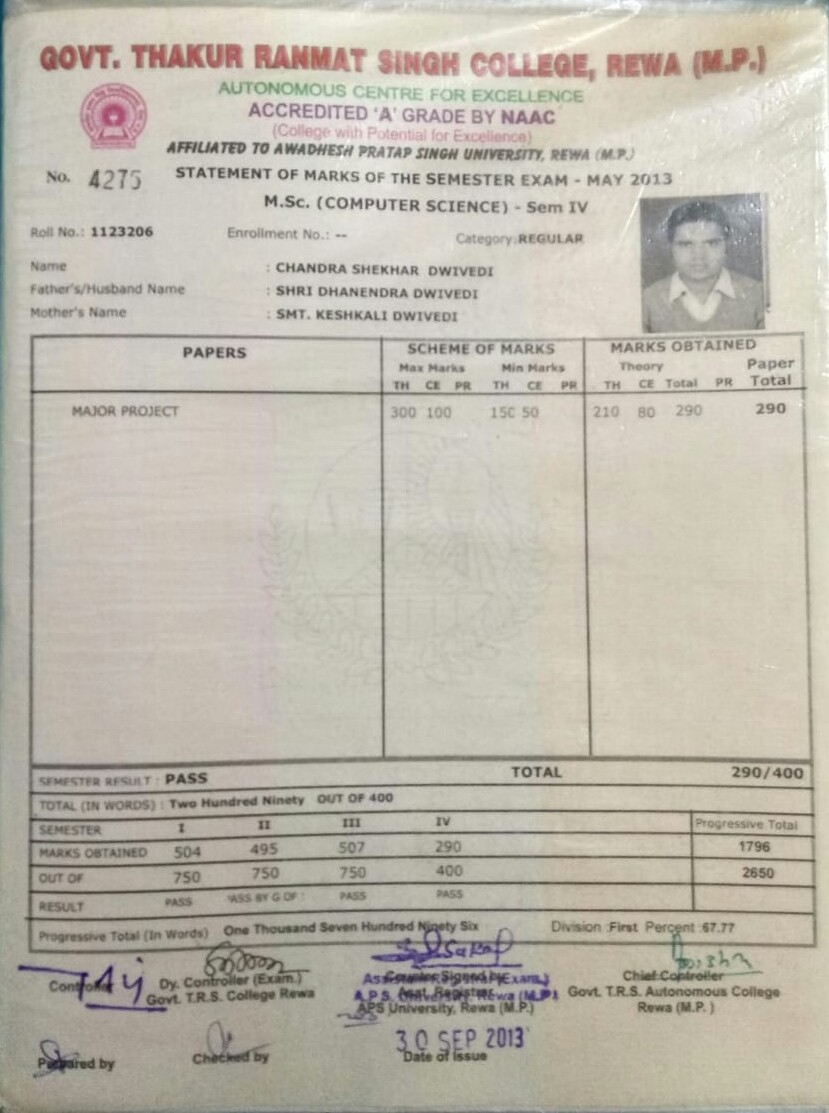 GOVT. THAKUR RANMAT SINGH COLLEGE, REWA (M.P.)
AUTONOMOUS CENTRE FOR EXCELLENCE
ACCREDITED 'A' GRADE BY NAAC
(College with Potential for Excellence)
AFFILIATED TO AWADHESH PRATAP SINGH UNIVERSITY, REWA (M.P.)
No. 4275 STATEMENT OF MARKS OF THE SEMESTER EXAM - MAY 2013
M.Sc. (COMPUTER SCIENCE) - Sem IV
Roll No.: 1123206 Enrollment No.: -- Category:REGULAR
Name : CHANDRA SHEKHAR DWIVEDI
Father's/Husband Name : SHRI DHANENDRA DWIVEDI
Mother's Name : SMT. KESHKALI DWIVEDI
PAPERS SCHEME OF MARKS MARKS OBTAINED
Max Marks Min Marks Theory Paper
TH CE PR TH CE PR TH CE Total PR Total
MAJOR PROJECT 300 100 150 50 210 80 290 290
SEMESTER RESULT : PASS TOTAL 290/400
TOTAL (IN WORDS) : Two Hundred Ninety OUT OF 400
SEMESTER I II III IV Progressive Total
MARKS OBTAINED 504 495 507 290 1796
OUT OF 750 750 750 400 2650
RESULT PASS PASS BY G OF : PASS PASS
Progressive Total (In Words) One Thousand Seven Hundred Ninety Six Division :First Percent :67.77
Controller Dy. Controller (Exam.) Counter Signed by Chief Controller
Govt. T.R.S. College Rewa Asst. Registrar Govt. T.R.S. Autonomous College
APS University, Rewa (M.P.) Rewa (M.P. )
Assistant Registrar (Exam.)
A.P.S. University, Rewa (M.P.)
30 SEP 2013
Prepared by Checked by Date of Issue